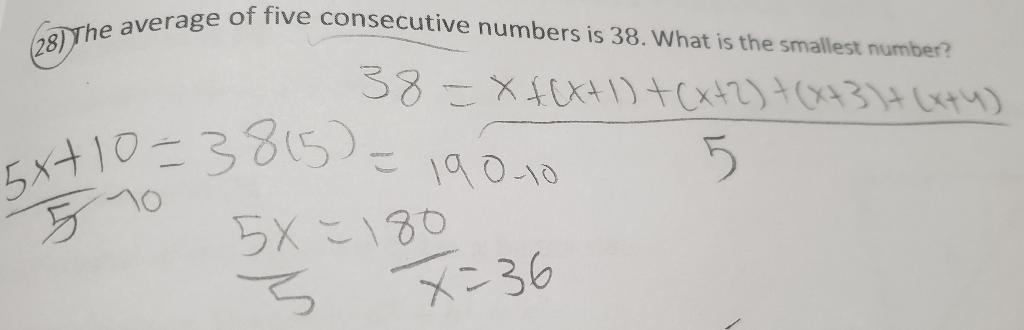 28) The average of five consecutive numbers is 38. What is the smallest number?
38 = x+(x+1)+(x+2)+(x+3)+(x+4)
5
5x+10 = 38(5) = 190-10
5 -10
5x = 180
5 x=36